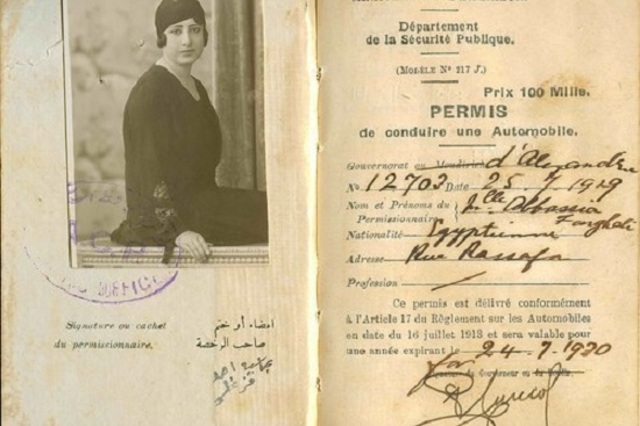 Signature ou cachet
du permissionnaire.
امضاء أو ختم
صاحب الرخصة
Département
de la Sécurité Publique.
(MODÈLE Nº 217 J.)
Prix 100 Mille.
PERMIS
de conduire une Automobile.
Gouvernorat ou d'Alexandrie
No. 12703 Date 25.7.1929
Nom et Prénoms du Mlle Abbassia
Permissionnaire Farghali
Nationalité Egyptienne
Adresse Rue Rassafa
Profession
Ce permis est délivré conformément
à l'Article 17 du Règlement sur les Automobiles
en date du 16 juillet 1913 et sera valable pour
une année expirant le 24.7.1930